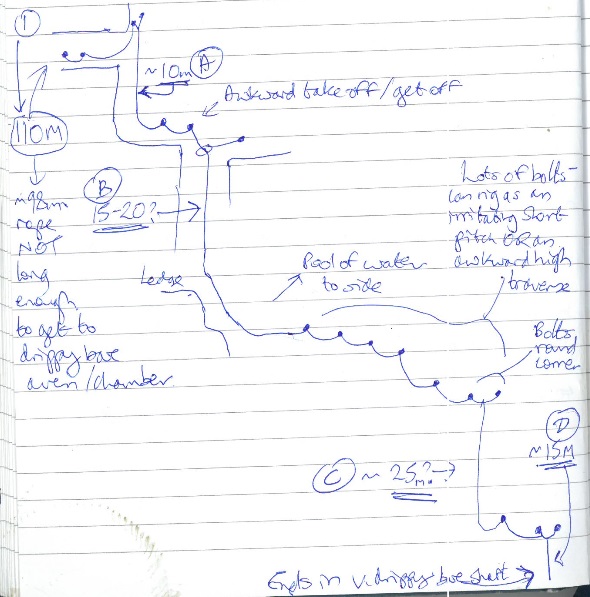 1
~10m A
Awkward take off/get off
110M
B
15-20?
rope
NOT
long
enough
to get to
drippy bore
aven/chamber
Ledge
Pool of water
to side
Lots of bolts-
can rig as an
irritating short
pitch OR an
awkward high
traverse
Bolts
round
corner
D
~15M
C ~ 25m?-?
Ends in v. drippy bore shaft